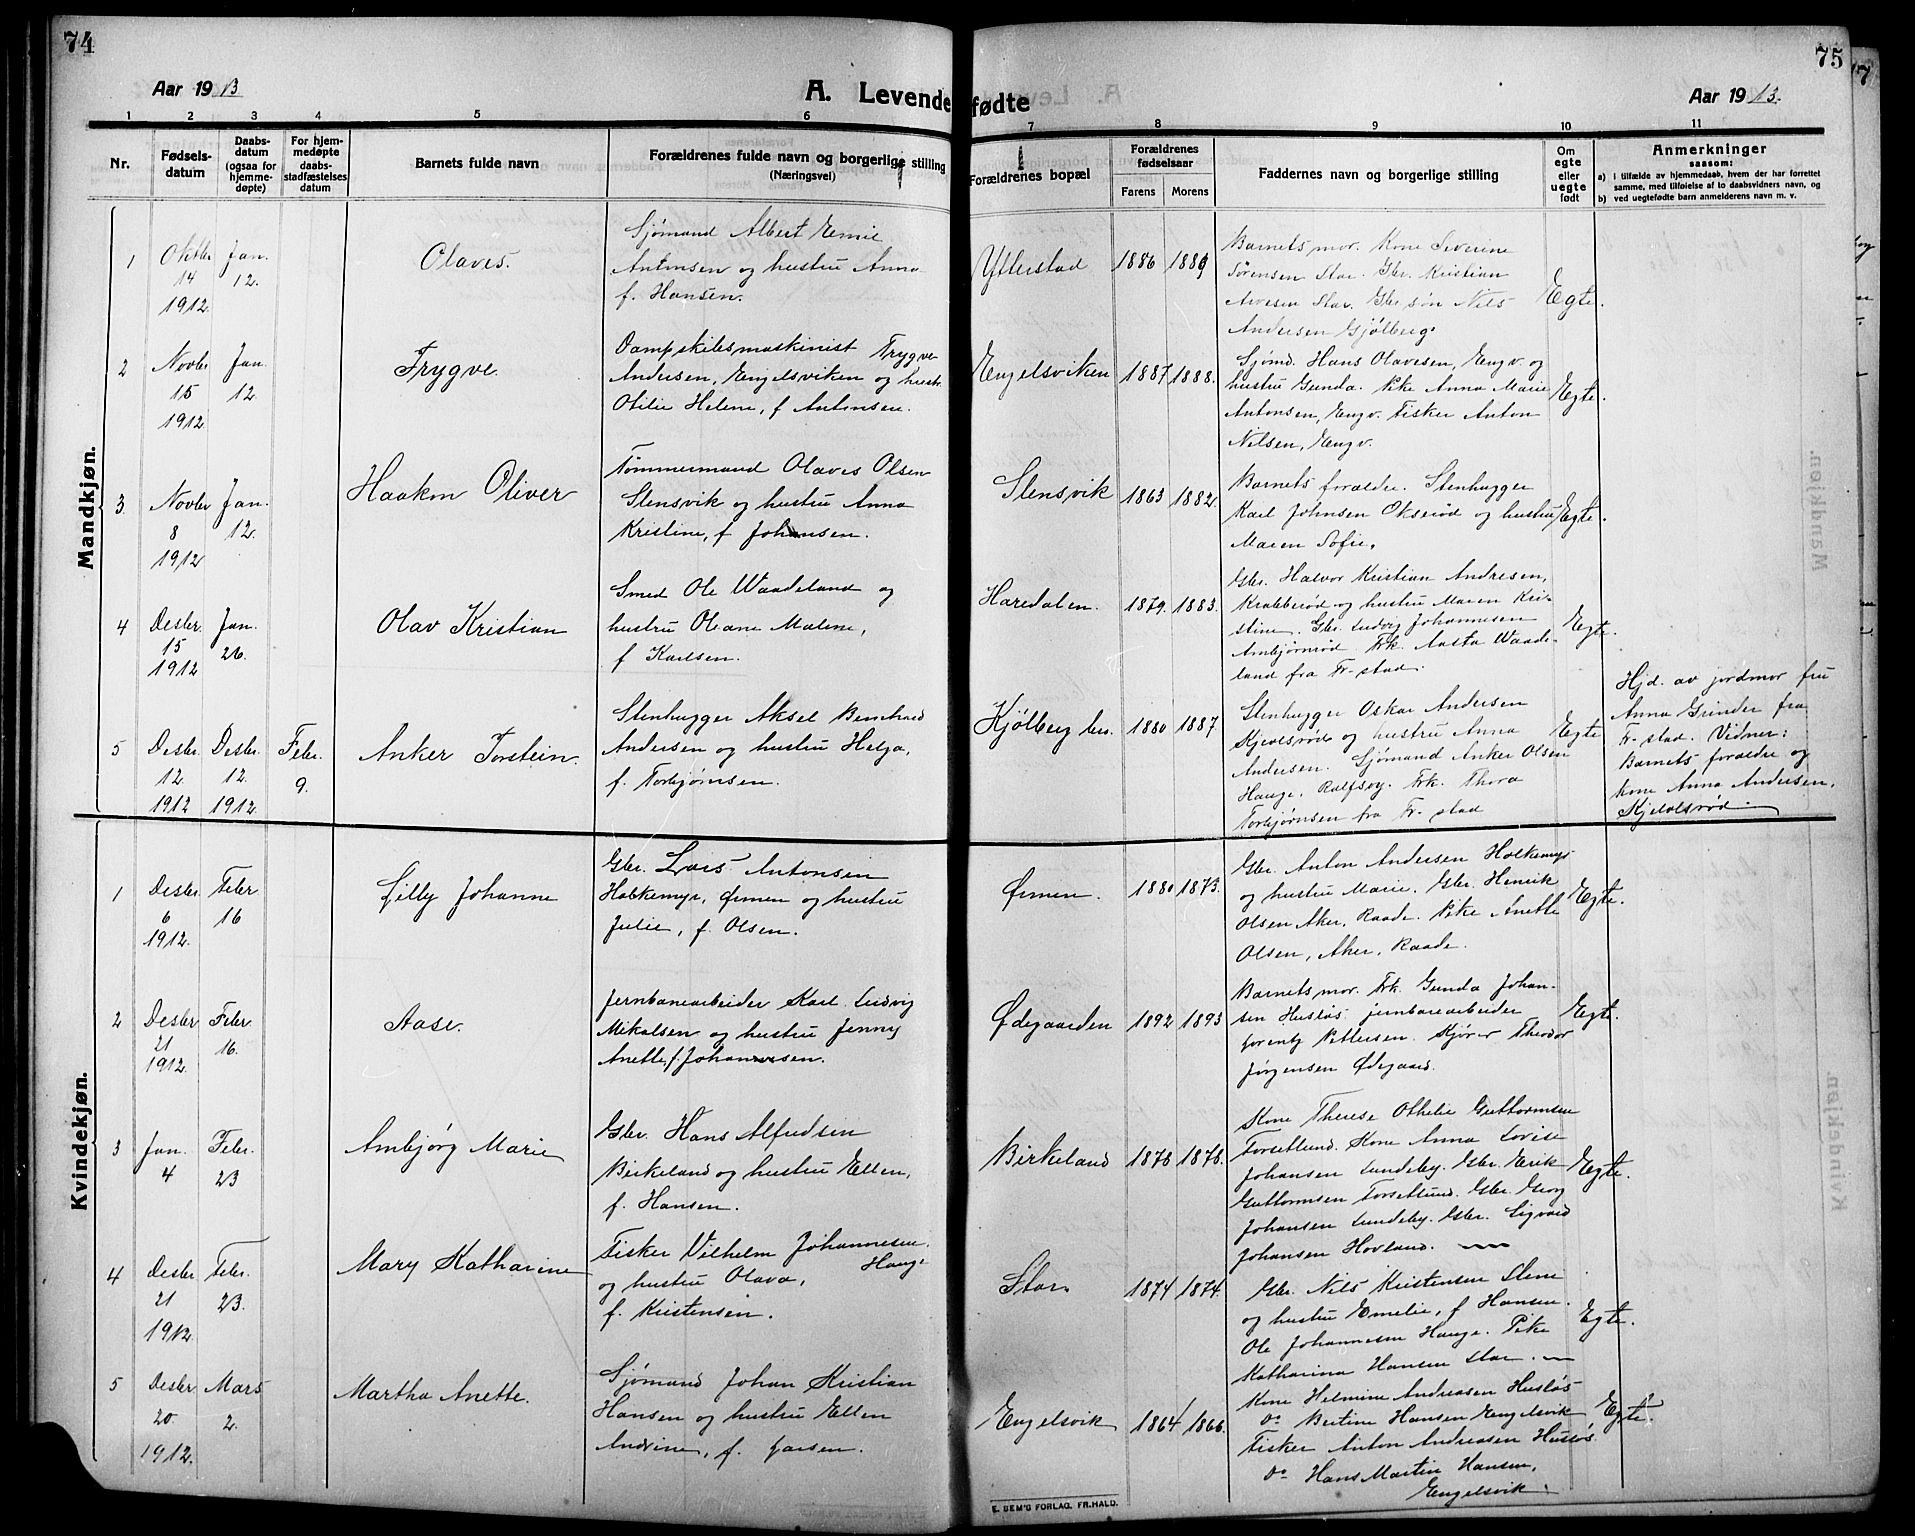 74
Aar 1913
A. Levendefødte
Aar 1913.
75
1 2 3 4 5 6 7 8 9 10 11
Nr.
Fødsels-
datum
Daabs-
datum
(ogsaa for
hjemme-
døpte)
For hjem-
medøpte
daabs-
stadfæstelses
datum
Barnets fulde navn
Forældrenes fulde navn og borgerlige stilling
(Næringsvei)
Forældrenes bopæl
Forældrenes
fødselsaar
Farens Morens
Faddernes navn og borgerlige stilling
Om
egte
eller
uegte
født
Anmerkninger
saasom:
a) i tilfælde av hjemmedaab, hvem der har forrettet
samme, med tilføielse af to daabsvidners navn, og
b) ved uegtefødte barn anmelderens navn m. v.
Mandkjøn.
1
Oktbr
14
1912
Jan.
12.
Olaves.
Sjømand Albert Emil
Antonsen og hustru Anna
f. Hansen.
Ytterstad
1886 1889
Barnets mor. Kone Severine
Sørensen Star. Gbr. Kristian
Arvesen Star. Gbr søn Nils
Andersen Gjølberg.
Egte.
2
Novbr
15
1912
Jan.
12
Trygve.
Dampskibsmaskinist Trygve
Andersen, Engelsviken og hustr.
Otilie Helene, f Antonsen.
Engelsviken
1887 1888.
Sjømd. Hans Olavesen, Engv. og
hustru Gunda. Pike Anna Marie
Antonsen, Engv. Fisker Anton
Nilsen, Engv.
Egte.
3
Novbr
8
1912
Jan.
12.
Haakon Oliver
Tømmermand Olaves Olsen
Slensvik og hustru Anna
Kristine, f Johansen.
Slensvik
1863 1882.
Barnets forældre. Stenhugger
Karl Johnsen Okserød og hustru
Maren Sofie.
Egte.
4
Desbr.
15
1912
Jan.
26.
Olav Kristian
Smed Ole Waadeland og
hustru Oleane Malene,
f Karlsen.
Haredalen.
1879. 1883.
Gbr. Halvor Kristian Andresen,
Krabberød og hustru Maren Kri-
stine. Gbr. Ludvig Johannesen
Ambjørnrød Frk. Aasta Waade-
land fra Fr-stad.
Egte.
5
Desbr.
12
1912
Desbr.
12.
1912.
Febr.
9.
Anker Torstein.
Stenhugger Aksel Bernhard
Andersen og hustru Helga,
f. Torbjørnsen.
Kjølberg bru.
1880 1887.
Stenhugger Oskar Andersen
Kjevlsrød og hustru Anna
Andersen. Sjømand Anker Olsen
Hauge, Ralfsøy. Frk. Thora
Torbjørnsen fra Fr-stad
Egte
Hjd. av jordmor fru
Anna Grinder fra
Fr-stad. Vidner:
Barnets forældre og
kone Anna Andersen,
Kjevlsrød.
Kvindekjøn.
1
Desbr.
6
1912.
Febr
16
Lilly Johanne
Gbr. Lars Antonsen
Holkemyr, Ørmen og hustru
Julie, f. Olsen.
Ørmen.
1880 1873.
Gbr. Anton Andersen Holkemyr
og hustru Marie. Gbr. Henrik
Olsen Aker, Raade. Pike Anette
Olsen, Aker, Raade.
Egte.
2
Desbr
21
1912.
Febr.
16.
Aase.
Jernbanearbeider Karl Ludvig
Mikalsen og hustru Jenny
Anette, f. Johannesen.
Ødegaarden
1892 1893
Barnets mor. Frk. Gunda Johan-
sen Husløs jernbanearbeider
Lorentz Pettersen. Kjører Theodor
Jørgensen Ødegaard.
Egte.
3
Jan.
4
Febr.
23
Ambjørg Marie
Gbr. Hans Alfredsen
Birkeland og hustru Ellen,
f. Hansen.
Birkeland
1878 1878.
Kone Therese Othelie Guttormsen
Torsetlund. Kone Anna Lovise
Johansen Lundeby. Gbr. Erik
Guttormsen Torsetlund. Gbr. Georg
Johansen Lundeby. Gbr. Sigvard
Johansen Hovland.
Egte.
4
Desbr.
21
1912.
Febr.
23.
Mary Katharine
Fisker Vilhelm Johannesen
Hauge
og hustru Olava,
f. Kristensen.
Star.
1874 1874.
Gbr. Nils Kristensen Stene
og hustru Emelie, f Hansen.
Ole Johannesen Hauge. Pike
Katharina Hansen Star.
Egte.
5
Desbr.
20.
1912.
Mars
2.
Martha Anette.
Sjømand Johan Kristian
Hansen og hustru Ellen
Andrine, f. Larsen.
Engelsvik
1864 1866.
Kone Helmine Andreasen Husløs
Do Bertine Hansen Engelsvik
Fisker Anton Andreasen Husløs
Do Hans Martin Hansen,
Engelsvik.
Egte.
E. SEM'S FORLAG, FR.HALD.